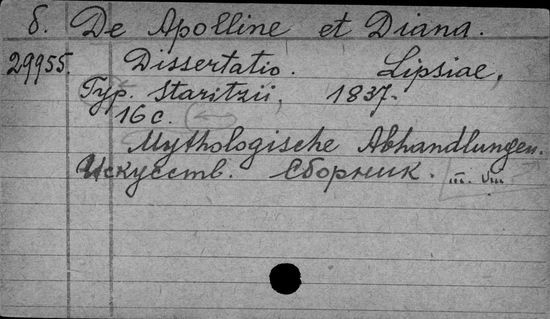 8. De Apolline et Diana.
29955. Dissertatio. Lipsiae,
Typ. Staritzii, 1837.
16 с.
Mythologische Abhandlungen.
Искусств. Сборник.